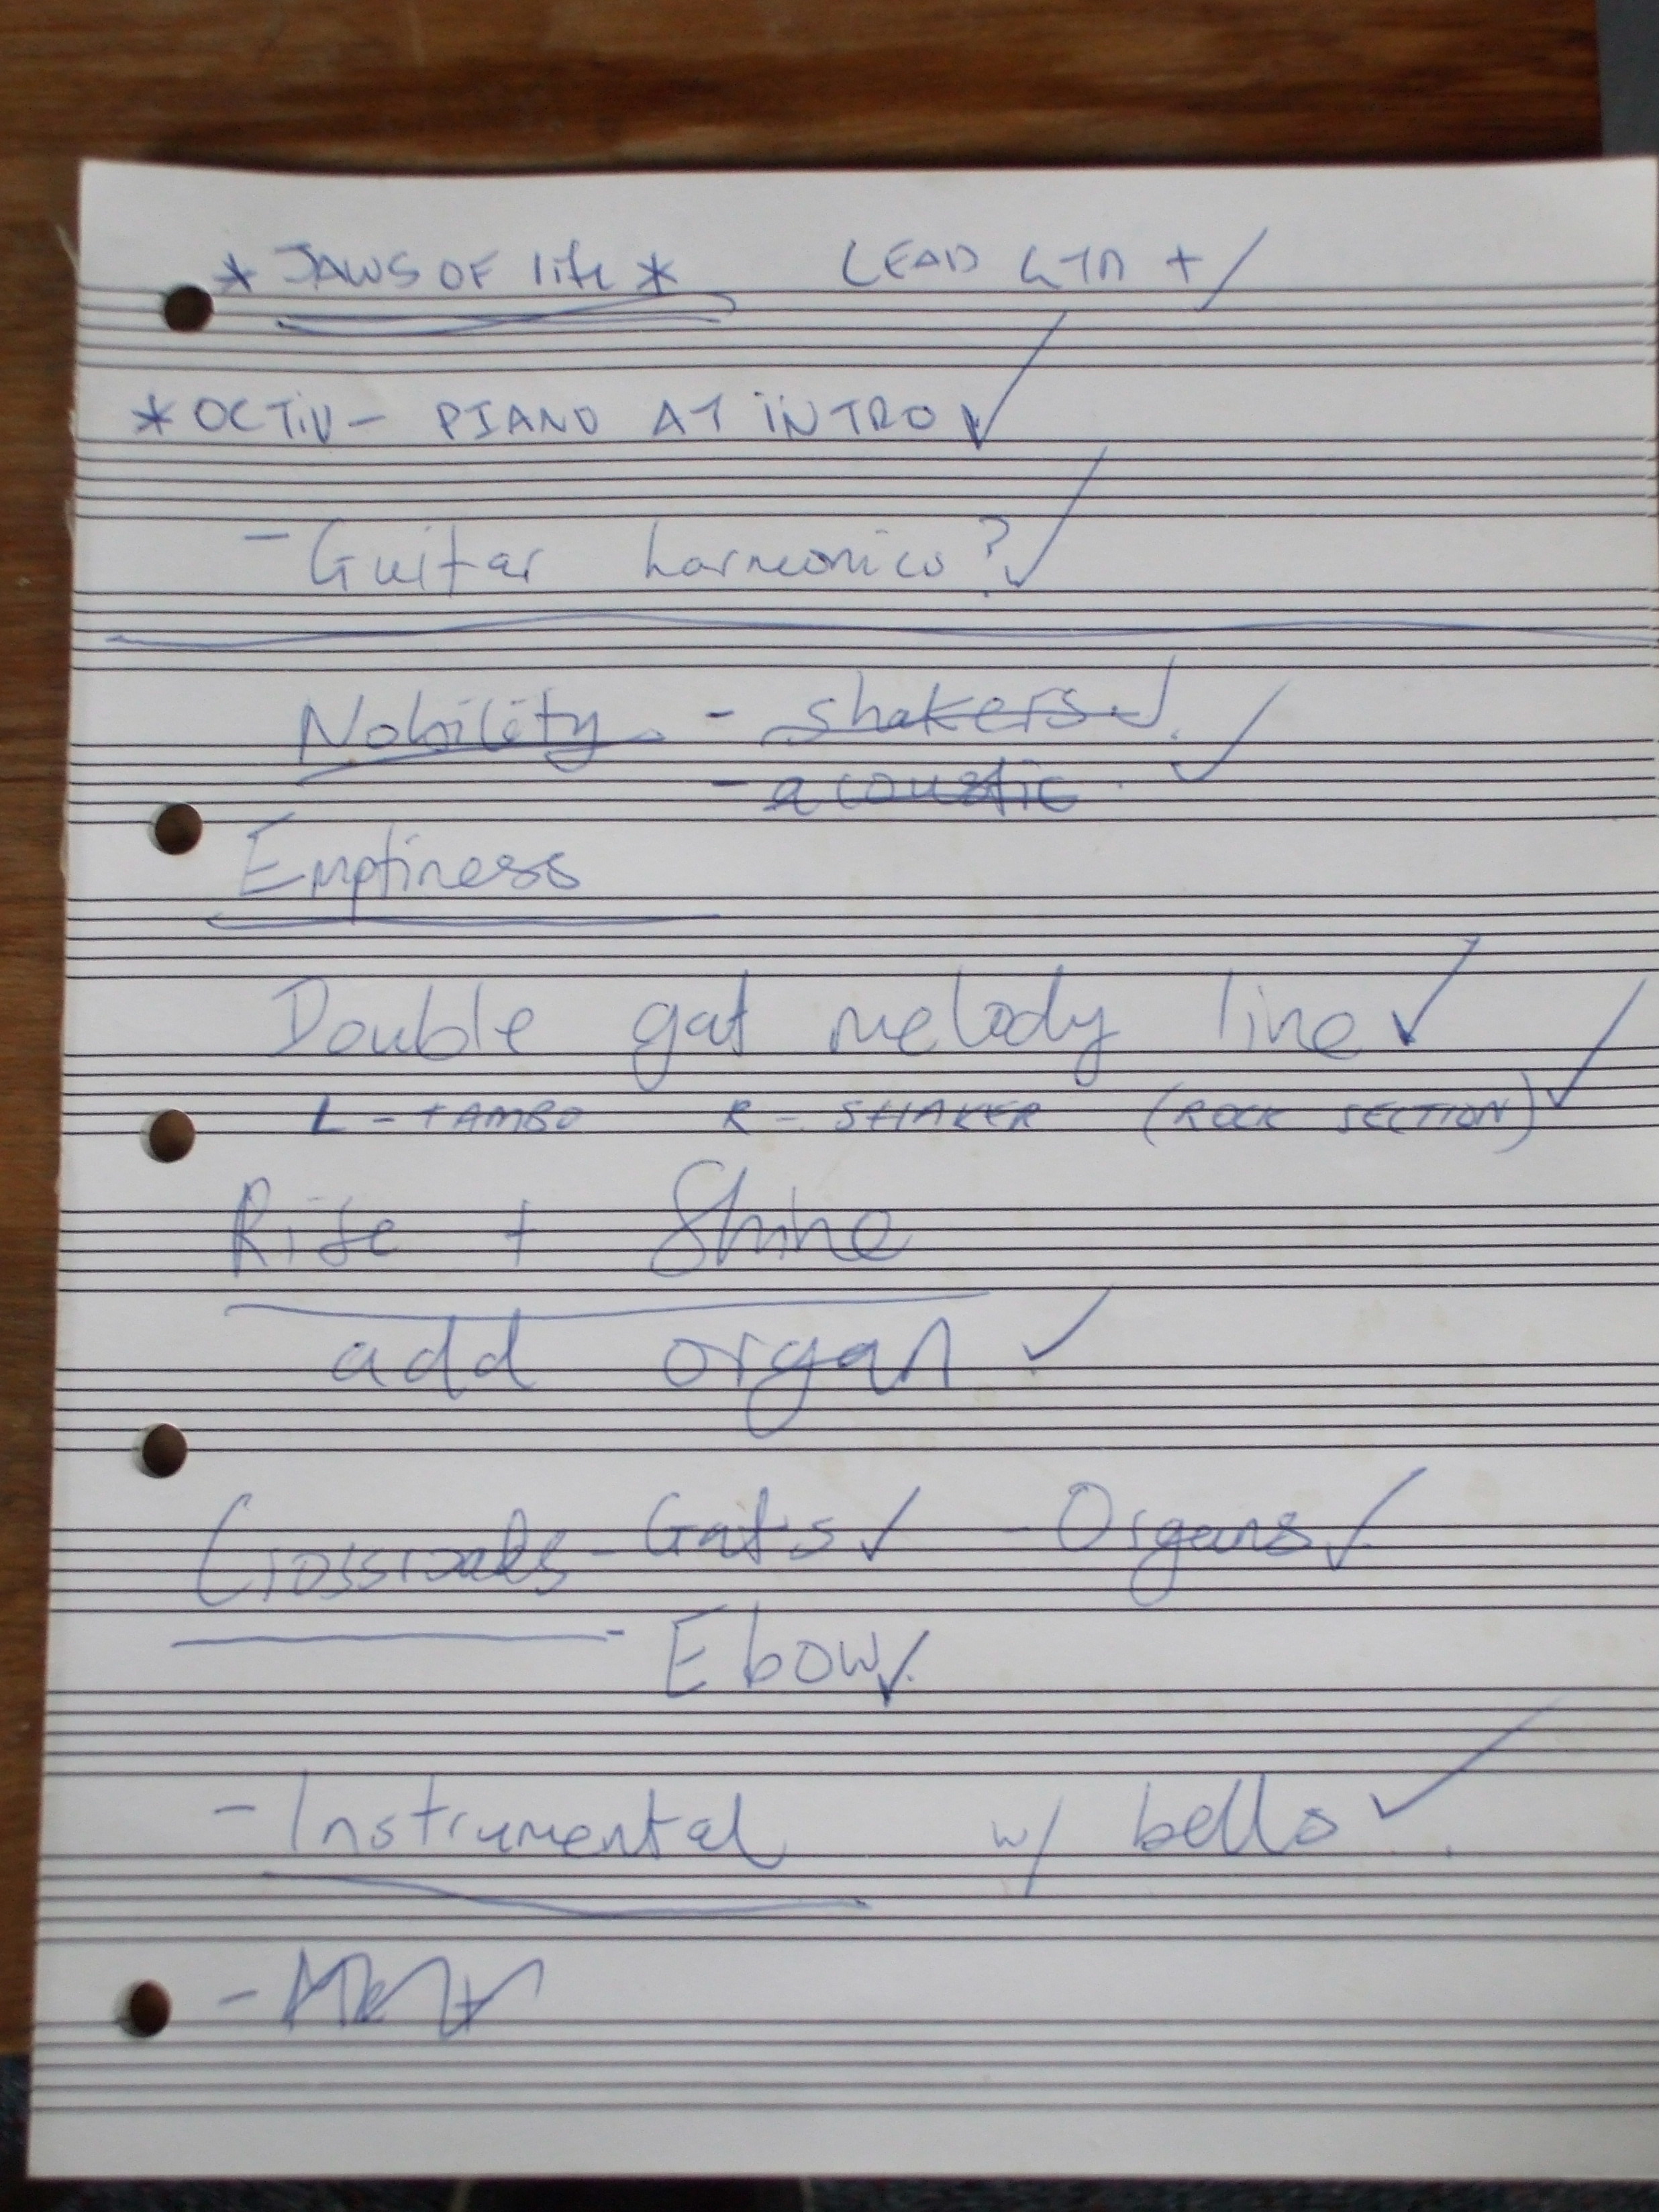 * JAWS OF life * LEAD GTR +/
* OCTIV - PIANO AT INTRO ✓
- Guitar harmonics? ✓
Nobility - shakers ✓
- acoustic ✓
Emptiness
Double gat melody line ✓
L - TAMBO R - SHAKER (ROCK SECTION) ✓
Rise + Shine
add organ ✓
Crossroads - Gats ✓ - Organs ✓
- Ebow ✓
- Instrumental w/ bells ✓
-